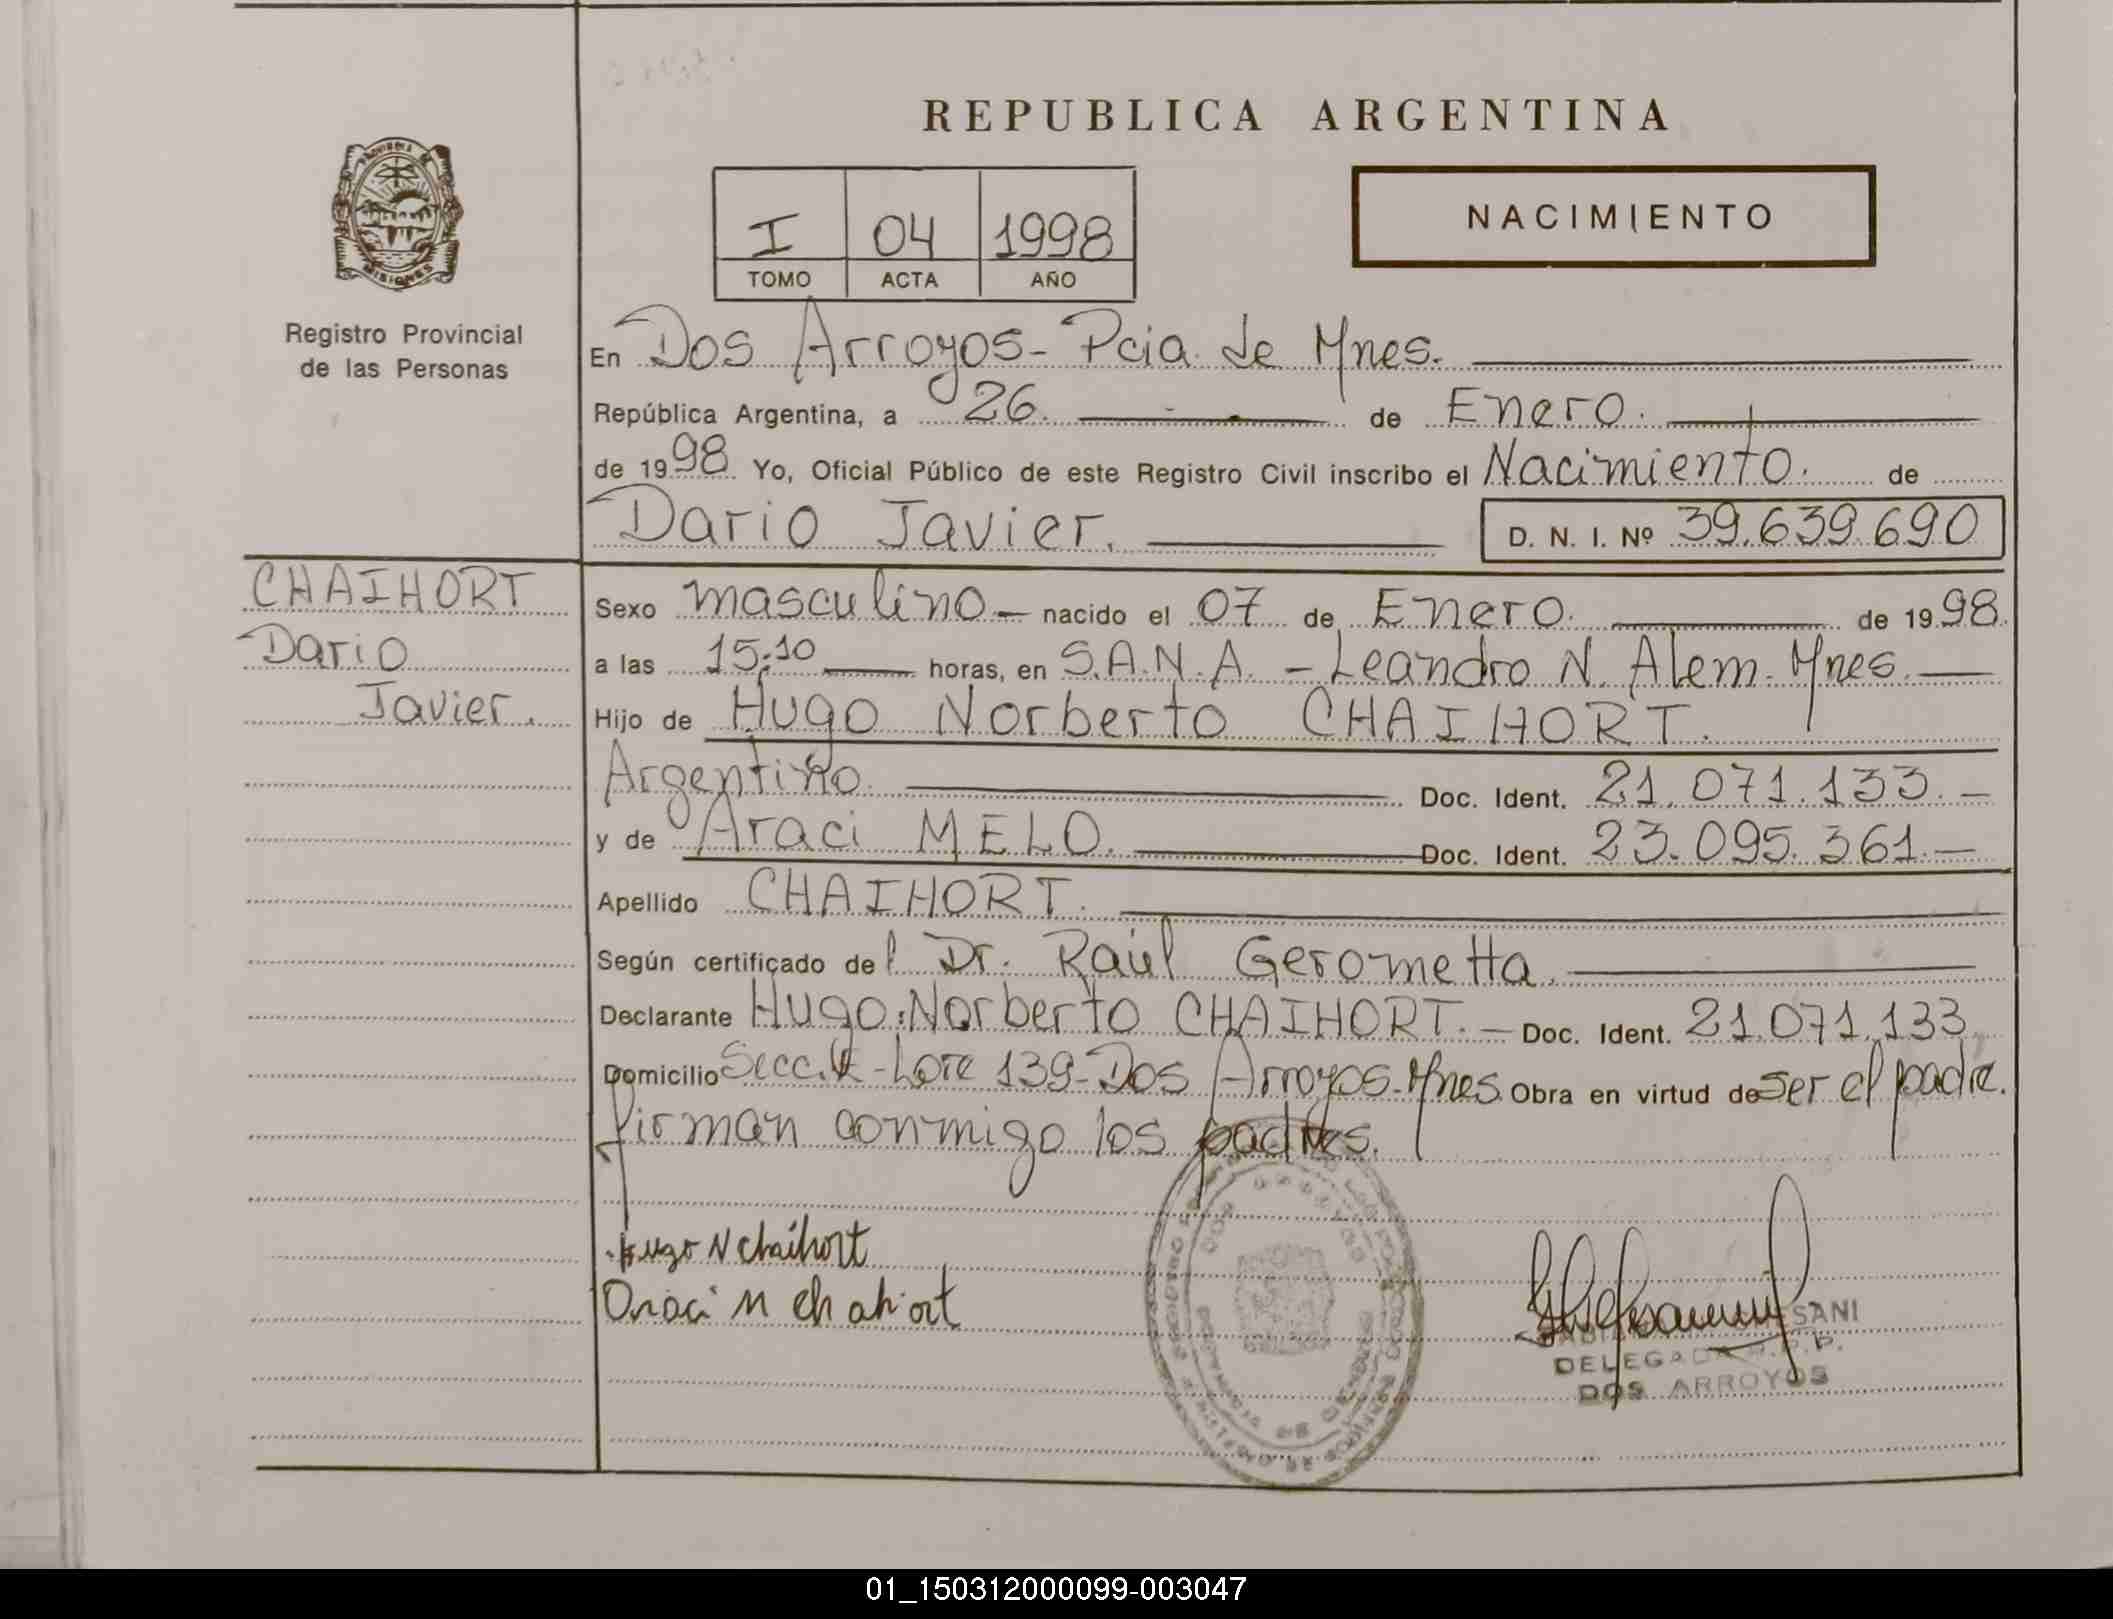 REPUBLICA ARGENTINA
PROVINCIA DE
MISIONES
Registro Provincial
de las Personas
I 04 1998
TOMO ACTA AÑO
NACIMIENTO
En Dos Arroyos- Pcia de Mnes.
República Argentina, a 26. de Enero.
de 1998. Yo, Oficial Público de este Registro Civil inscribo el Nacimiento. de
Dario Javier.
D. N. I. Nº 39.639.690
CHAIHORT
Dario
Javier.
Sexo masculino- nacido el 07 de Enero. de 1998.
a las 15:10 horas, en S.A.N.A. - Leandro N. Alem. Mnes.
Hijo de Hugo Norberto CHAIHORT.
Argentino. Doc. Ident. 21.071.133.-
y de Araci MELO. Doc. Ident. 23.095.361.-
Apellido CHAIHORT.
Según certificado del Dr. Raúl Gerometta.
Declarante Hugo Norberto CHAIHORT.- Doc. Ident. 21.071.133
Domicilio Secc. - Lote 139-Dos Arroyos-Mnes. Obra en virtud de ser el padre.
firman conmigo los padres.
Hugo N chaihort
Oraci M chahiort
SANI
DELEGADA R.P.P.
DOS ARROYOS
01_150312000099-003047